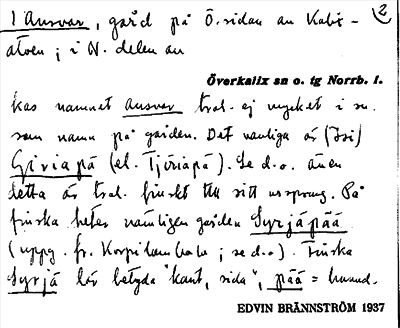 1 Ansvar, gård på Ö. sidan av Kalix-
älven; i N. delen av
2
Överkalix sn o. tg Norrb. l.
kas namnet Ansvar trol. ej mycket i sn.
som namn på gården. Det vanliga är (Isi)
Giriapä (el. Tjöriapä). Se d.o. även
detta är trol. finskt till sitt ursprung. På
finska heter nämligen gården Syrjäpää
(uppg. fr. Korpilombolo; se d.o.). Finska
Syrjä lär betyda "kant, sida", pää = huvud.
EDVIN BRÄNNSTRÖM 1937